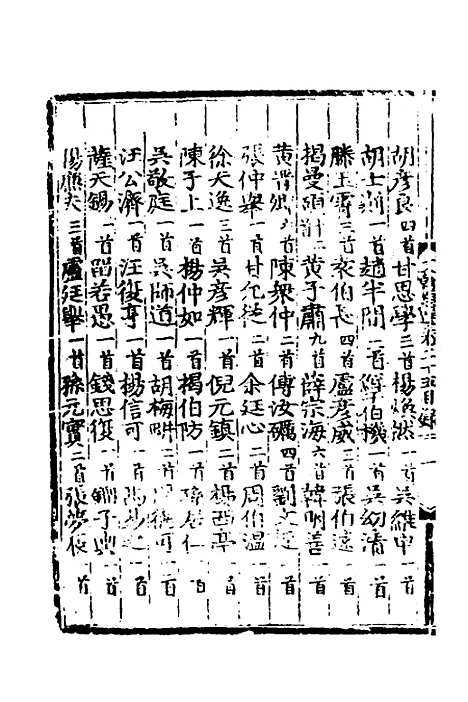 胡彥良 四首 甘思學 三首 楊煥然 一首 吳維申 一首
胡士 一首 趙半閒 一首 鮮于伯機 一首 吳幼清 一首
滕玉霄 三首 袁伯長 四首 盧彥威 三首 張伯遠 一首
揭曼碩 黃子肅 九首 薛宗海 六首 韓明善 一首
黃晉卿 首 陳衆仲 二首 傅汝礪 四首 劉 一首
張仲舉 一首 甘允從 二首 余廷心 二首 周伯溫 一首
徐天逸 三首 吳彥輝 一首 倪元鎮 二首 楊西亭 一首
陳子上 一首 楊仲如 一首 揭伯防 一首 居仁 首
吳敬庭 一首 吳師道 一首 胡梅 二首 可 首
汪公濟 一首 汪復亨 一首 楊信可 一首 首
薩天錫 一首 邵若愚 一首 錢思復 一首 劉子 首
楊廉夫 三首 盧廷舉 一首 孫元實 二首 張夢 首